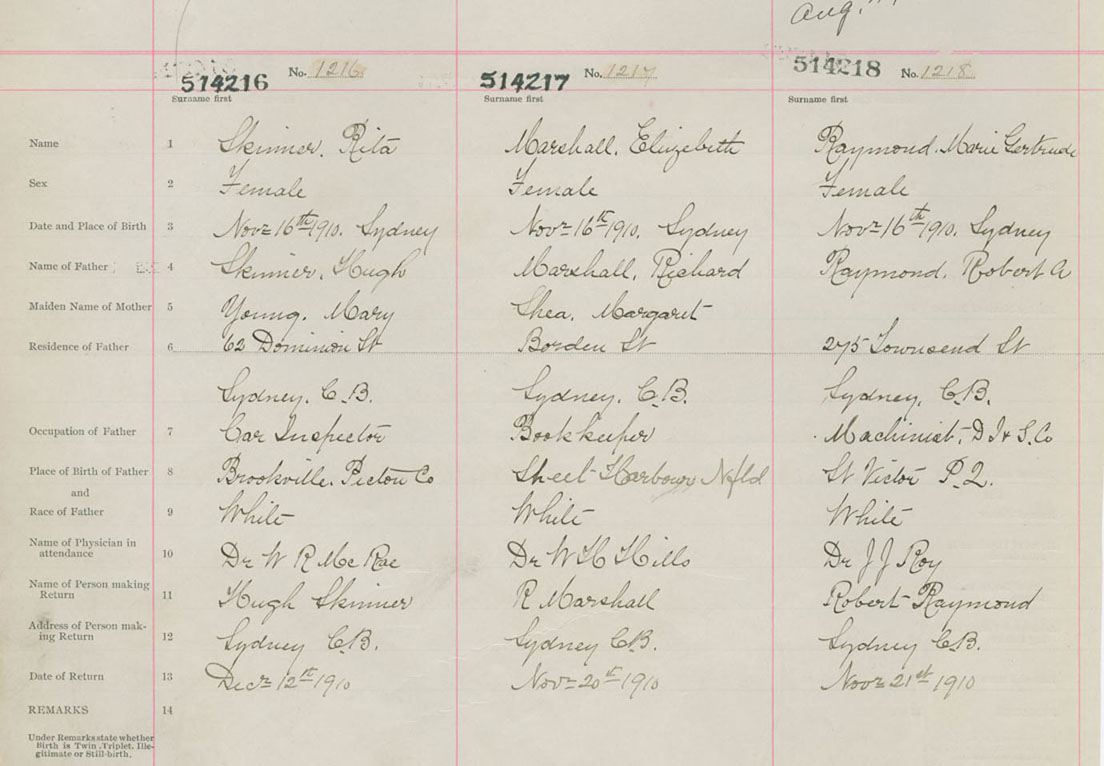 Aug.
514216 No. 1216 514217 No. 1217 514218 No. 1218
Surname first Surname first Surname first
Name 1 Skinner, Rita Marshall, Elizebeth Raymond, Marie Gertrude
Sex 2 Female Female Female
Date and Place of Birth 3 Nov 16th 1910, Sydney Nov 16th 1910, Sydney Nov 16th 1910, Sydney
Name of Father 4 Skinner, Hugh Marshall, Richard Raymond, Robert A
Maiden Name of Mother 5 Young, Mary Shea, Margaret
Residence of Father 6 62 Dominion St Borden St 275 Townsend St
Sydney, C.B. Sydney, C.B. Sydney, C.B.
Occupation of Father 7 Car Inspector Bookkeeper Machinist, D I & S. Co
Place of Birth of Father 8 Brookville, Pictou Co Sheet Harbour Nfld St Victor P.Q.
and
Race of Father 9 White White White
Name of Physician in
attendance 10 Dr W R McRae Dr W H Hills Dr J J Roy
Name of Person making
Return 11 Hugh Skinner R Marshall Robert Raymond
Address of Person mak-
ing Return 12 Sydney C.B. Sydney C.B. Sydney C.B.
Date of Return 13 Dec 12th 1910 Nov 20th 1910 Nov 21st 1910
REMARKS 14
Under Remarks state whether
Birth is Twin, Triplet, Ille-
gitimate or Still-birth.